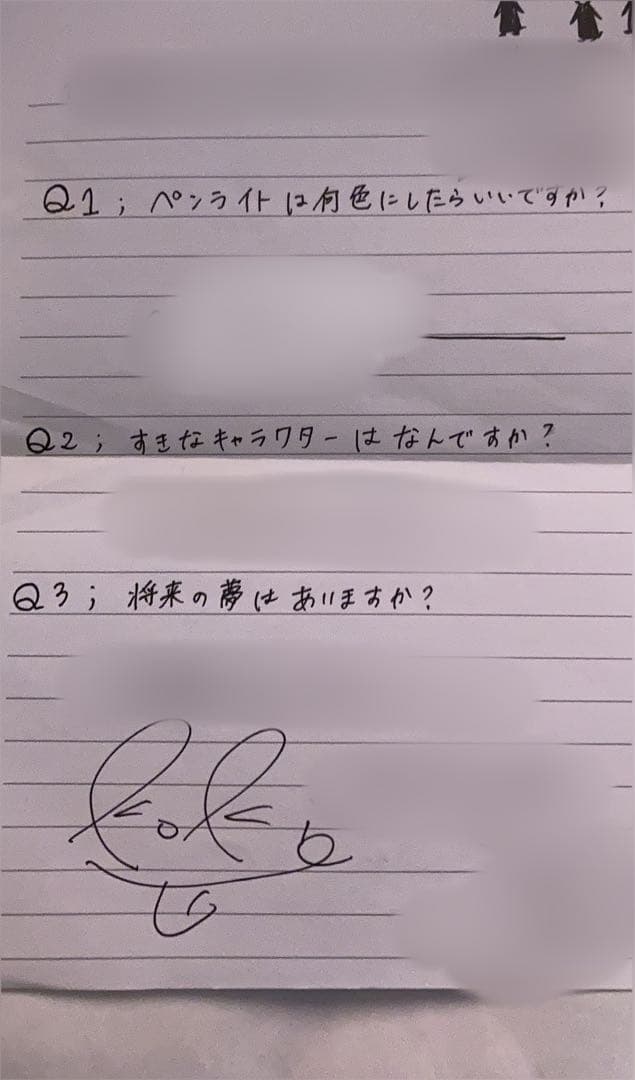 Q1; ペンライトは何色にしたらいいですか?
Q2; すきなキャラクターはなんですか?
Q3; 将来の夢はありますか?